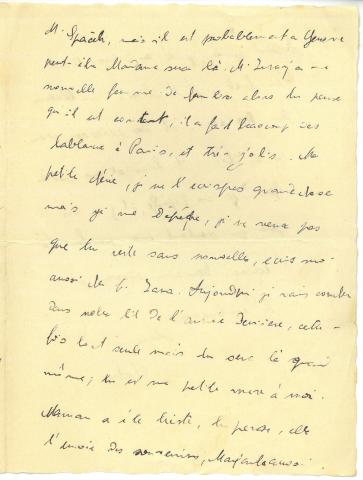 M. Spaak, mais il est probablement a Geneve
peut-être Madame sera là. M. a une
nouvelle femme de alors tu penses
qu'il est content, il a fait beaucoup des
tableaux à Paris, et très jolis. Ma
petite chérie, je ne t'ecris pas grande chose
mais je me dépêche, je ne veux pas
que tu reste sans nouvelles, ecris moi
aussi de Aujourdhui je vais coucher
dans notre lit de l'année dernière, cette
fois tout seule mais tu sera là quand
même, tu es ma petite à moi.
Maman a été triste, tu penses, elle
t'envoie des souvenirs, aussi.